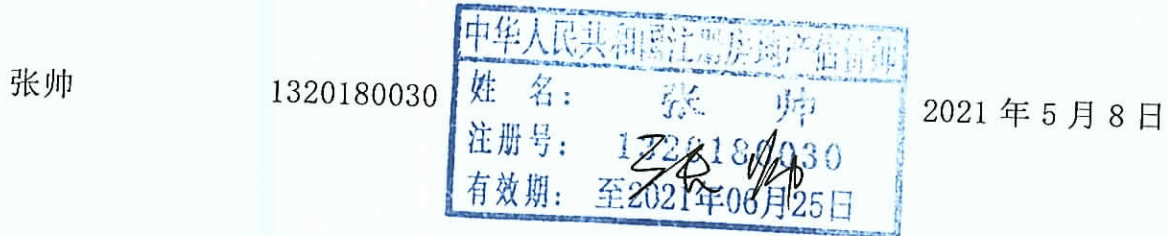 张帅
1320180030
中华人民共和国注册房地产估价师
姓 名: 张 帅
注册号: 1320180030
有效期: 至2021年06月25日
张帅
2021 年 5 月 8 日